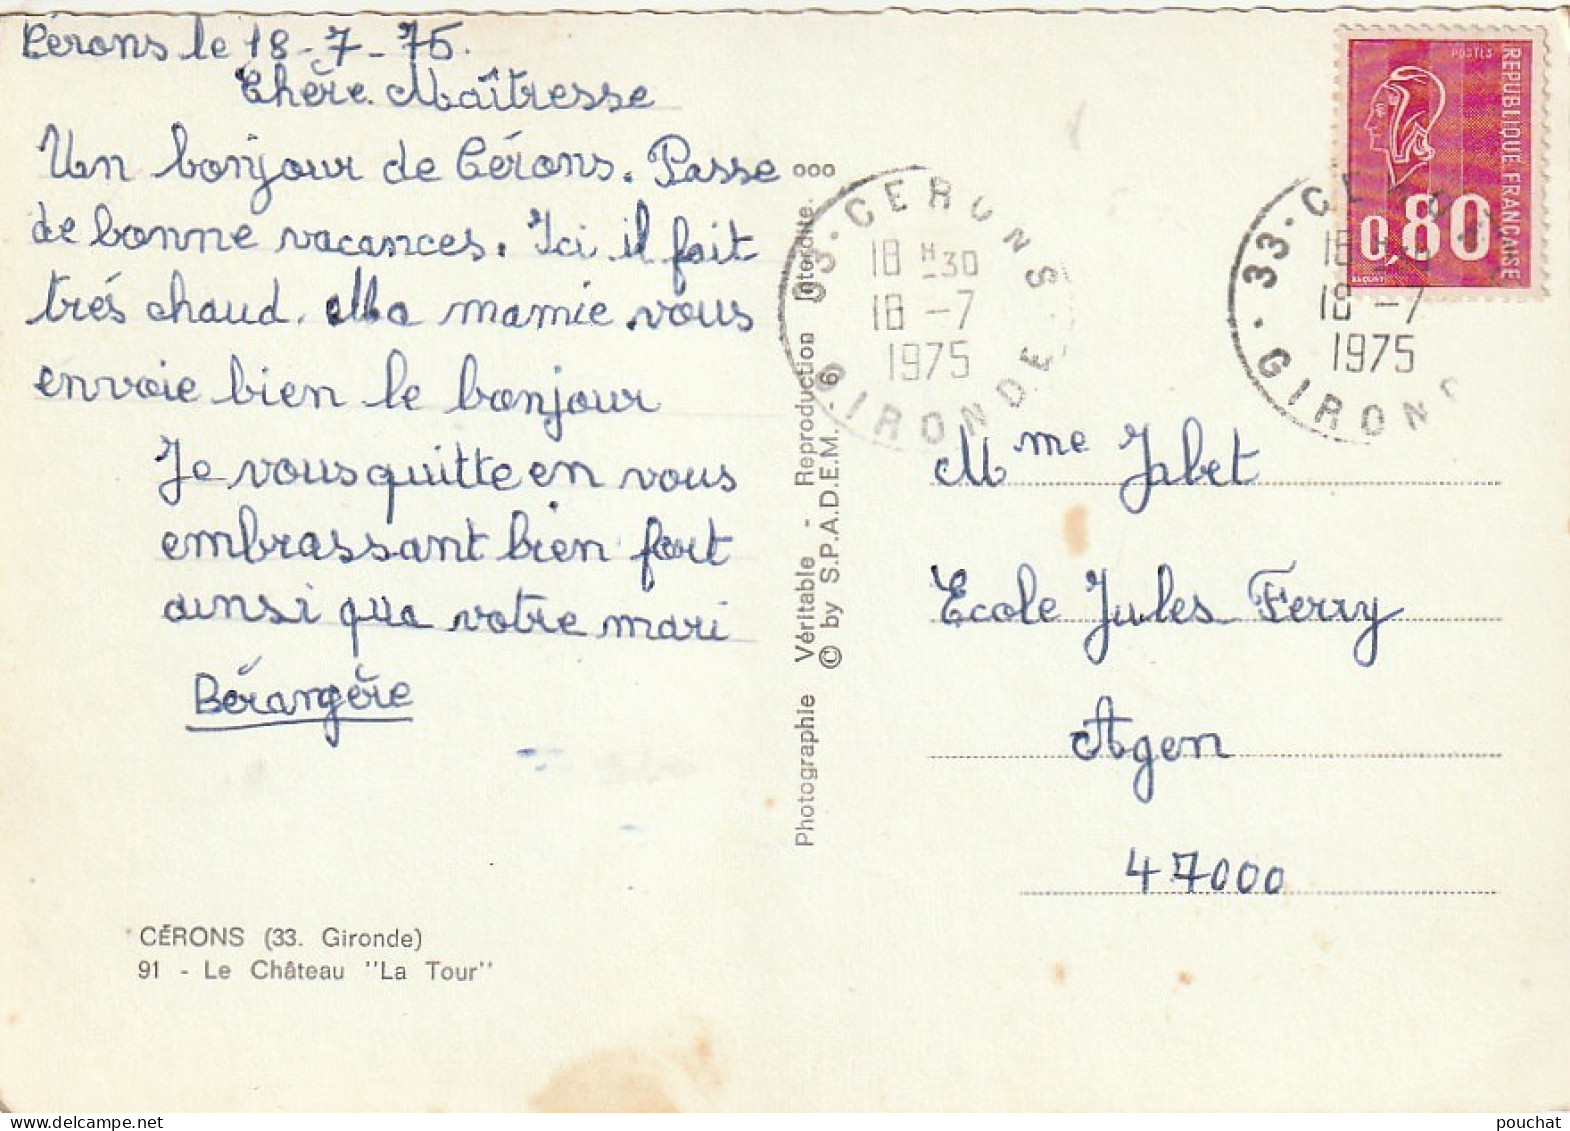 Cérons le 18-7-75.
Chère Maîtresse
Un bonjour de Cérons. Passe
de bonne vacances. Ici il fait
trés chaud. Ma mamie vous
envoie bien le bonjour
Je vous quitte en vous
embrassant bien fort
ainsi que votre mari
Bérangère
CÉRONS (33. Gironde)
91 - Le Château "La Tour"
Photographie Véritable - Reproduction Interdite. ooo
© by S.P.A.D.E.M. - 6
33 · CERONS
18 H -30
18 -7
1975
GIRONDE
POSTES
REPUBLIQUE FRANCAISE
0,80
33 · CERONS
18 H -30
18 -7
1975
GIRONDE
Mme Jabet
Ecole Jules Ferry
Agen
47000
pouchat